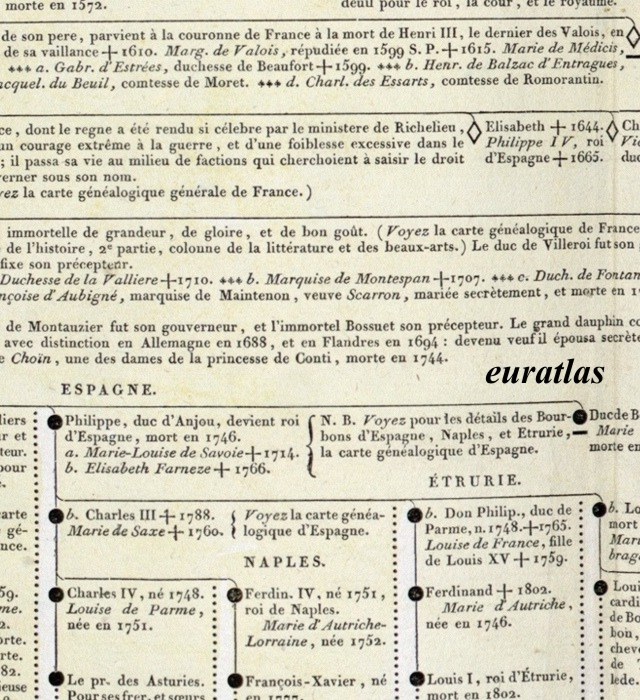 m morte en 1572.
deuil pour le roi, la cour, et le royaume.
de son pere, parvient à la couronne de France à la mort de Henri III, le dernier des Valois, en
de sa vaillance + 1610. Marg. de Valois, répudiée en 1599 S. P. + 1615. Marie de Médicis,
a. Gabr. d'Estrées, duchesse de Beaufort + 1599. b. Henr. de Balzac d'Entragues,
acquel. du Beuil, comtesse de Moret. d. Charl. des Essarts, comtesse de Romorantin.
ce, dont le regne a été rendu si célebre par le ministere de Richelieu,
un courage extrême à la guerre, et d'une foiblesse excessive dans le
; il passa sa vie au milieu de factions qui cherchoient à saisir le droit
verner sous son nom.
yez la carte généalogique générale de France.)
Elisabeth + 1644.
Philippe IV, roi
d'Espagne + 1665.
Ch
Vi
duc
immortelle de grandeur, de gloire, et de bon goût. (Voyez la carte généalogique de France
de l'histoire, 2e partie, colonne de la littérature et des beaux-arts.) Le duc de Villeroi fut son
fixe son précepteur.
Duchesse de la Valliere + 1710. b. Marquise de Montespan + 1707. c. Duch. de Fontan
nçoise d'Aubigné, marquise de Maintenon, veuve Scarron, mariée secrètement, et morte en 1
de Montauzier fut son gouverneur, et l'immortel Bossuet son précepteur. Le grand dauphin co
avec distinction en Allemagne en 1688, et en Flandres en 1694 : devenu veuf il épousa secrète
e Choin, une des dames de la princesse de Conti, morte en 1744.
euratlas
ESPAGNE.
liers
r et
teur.
pour
Philippe, duc d'Anjou, devient roi
d'Espagne, mort en 1746.
a. Marie-Louise de Savoie + 1714.
b. Elisabeth Farneze + 1766.
N. B. Voyez pour les détails des Bour-
bons d'Espagne, Naples, et Etrurie,
la carte généalogique d'Espagne.
Duc de B
Marie
morte en
ÉTRURIE.
carte
gé-
nce.
b. Charles III + 1788.
Marie de Saxe + 1760.
Voyez la carte généa-
logique d'Espagne.
b. Don Philip., duc de
Parme, n. 1748. + 1765.
Louise de France, fille
de Louis XV + 1759.
b. Lo
mort
Mari
brag
NAPLES.
59.
me.
2.
orte.
orte.
82.
ieuse
Charles IV, né 1748.
Louise de Parme,
née en 1751.
Ferdin. IV, né 1751,
roi de Naples.
Marie d'Autriche-
Lorraine, née 1752.
Ferdinand + 1802.
Marie d'Autriche,
née en 1746.
Loui
cardi
de Bo
bon,
chev
de
lede.
Le pr. des Asturies.
Pour ses frer. et sœurs
François-Xavier, né
en 1777.
Louis I, roi d'Étrurie,
mort en 1802.